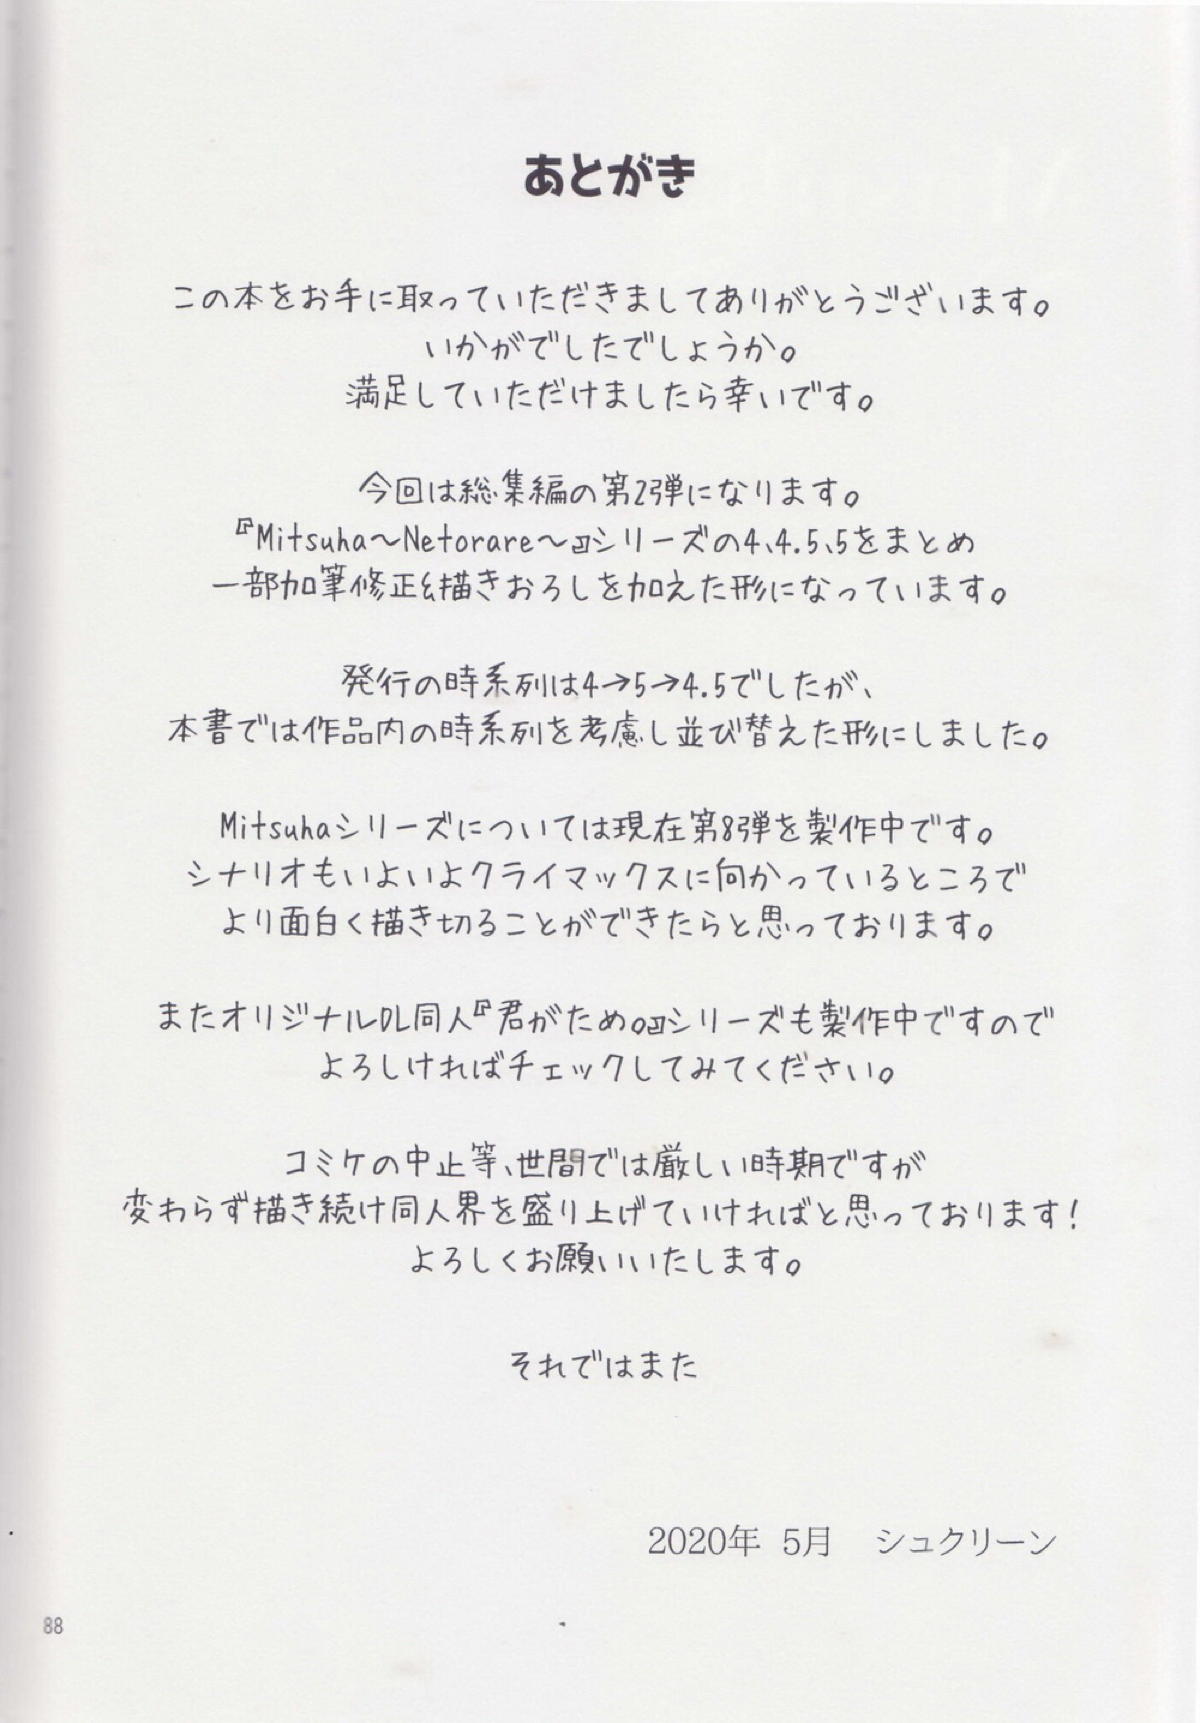 あとがき
この本をお手に取っていただきましてありがとうございます。
いかがでしたでしょうか。
満足していただけましたら幸いです。
今回は総集編の第2弾になります。
『Mitsuha～Netorare～』シリーズの4、4.5、5をまとめ
一部加筆修正&描きおろしを加えた形になっています。
発行の時系列は4→5→4.5でしたが、
本書では作品内の時系列を考慮し並び替えた形にしました。
Mitsuhaシリーズについては現在第8弾を製作中です。
シナリオもいよいよクライマックスに向かっているところで
より面白く描き切ることができたらと思っております。
またオリジナルDL同人『君がため。』シリーズも製作中ですので
よろしければチェックしてみてください。
コミケの中止等、世間では厳しい時期ですが
変わらず描き続け同人界を盛り上げていければと思っております!
よろしくお願いいたします。
それではまた
2020年 5月 シュクリーン
88